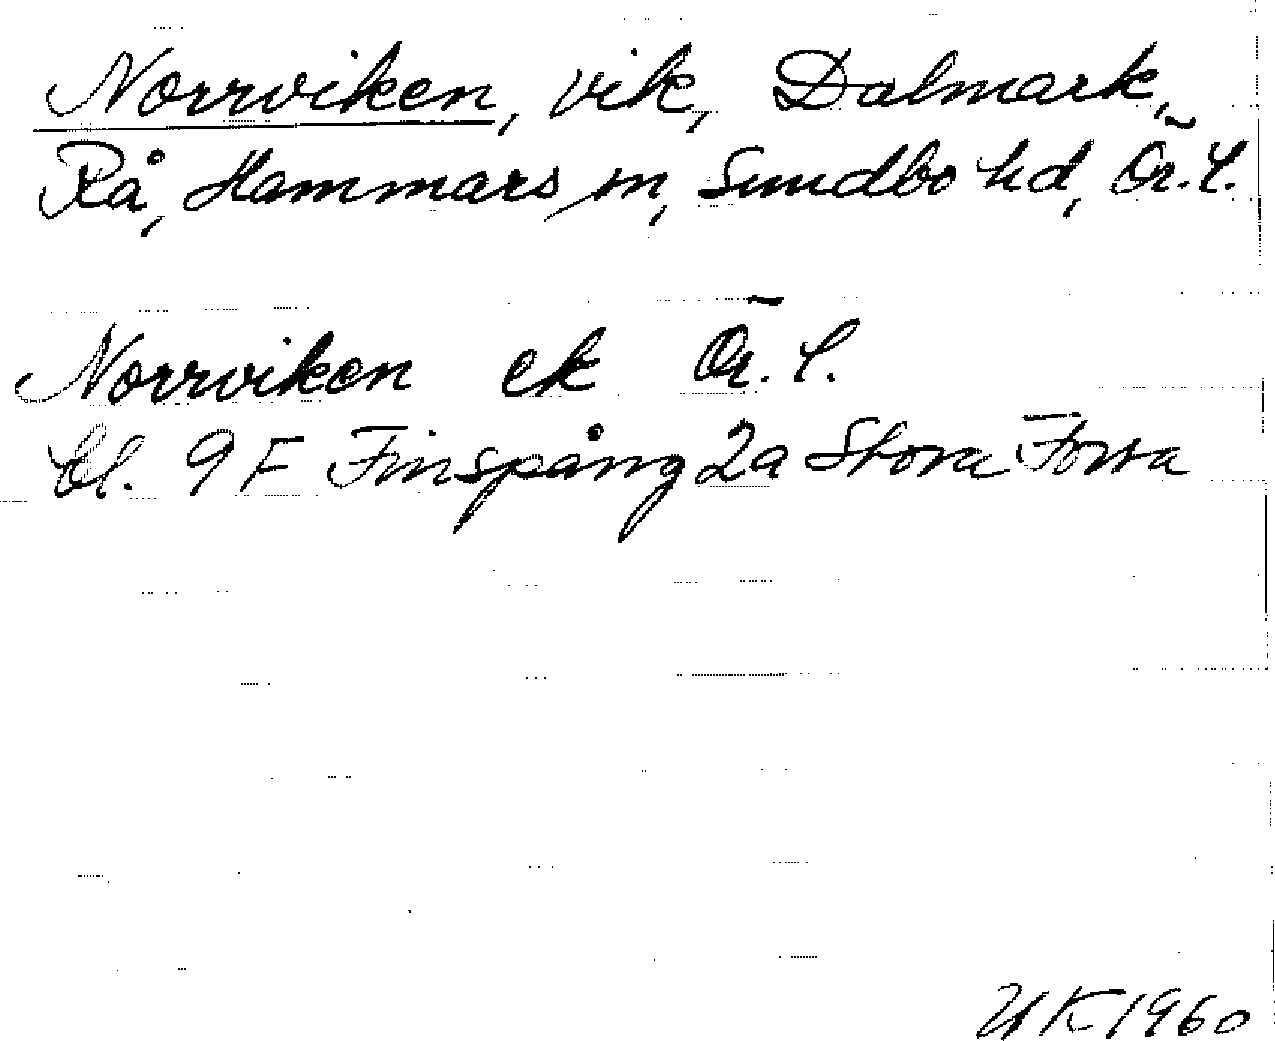 Norrviken, vik, Dalmark,
Rå, Hammars sn, Sundbo hd, Ör. l.
Norrviken ek Ör. l.
bl. 9 F Finspång 2a Stora Forsa
UK 1960